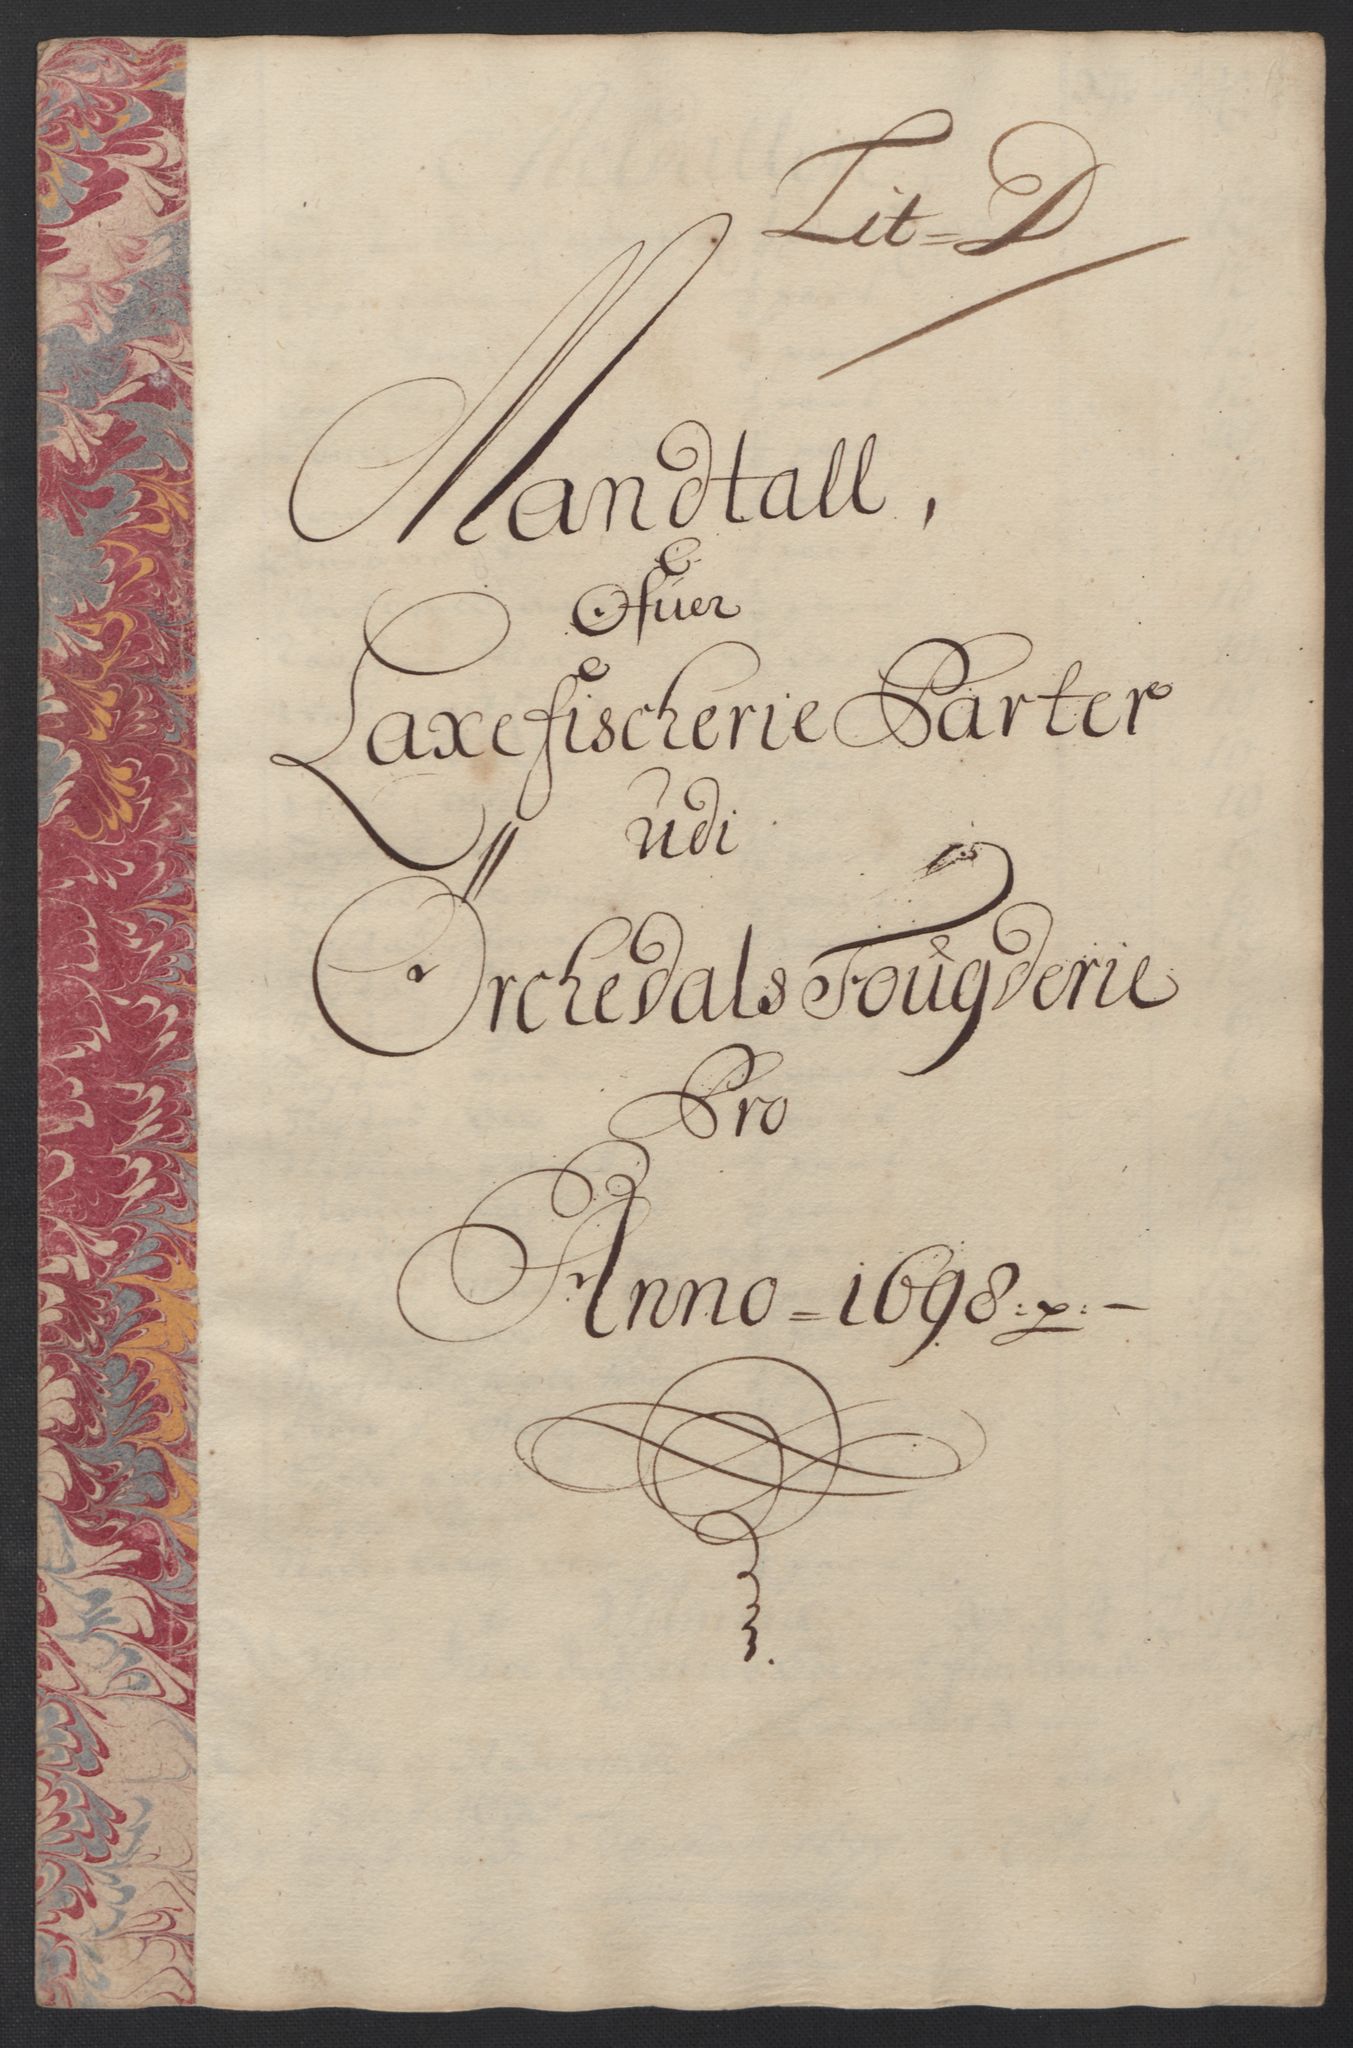 Lit=D
Mandtall,
Ofuer
Laxefischerie Parter
udi
Örchedals Fougderie
Pro
Anno=1698.